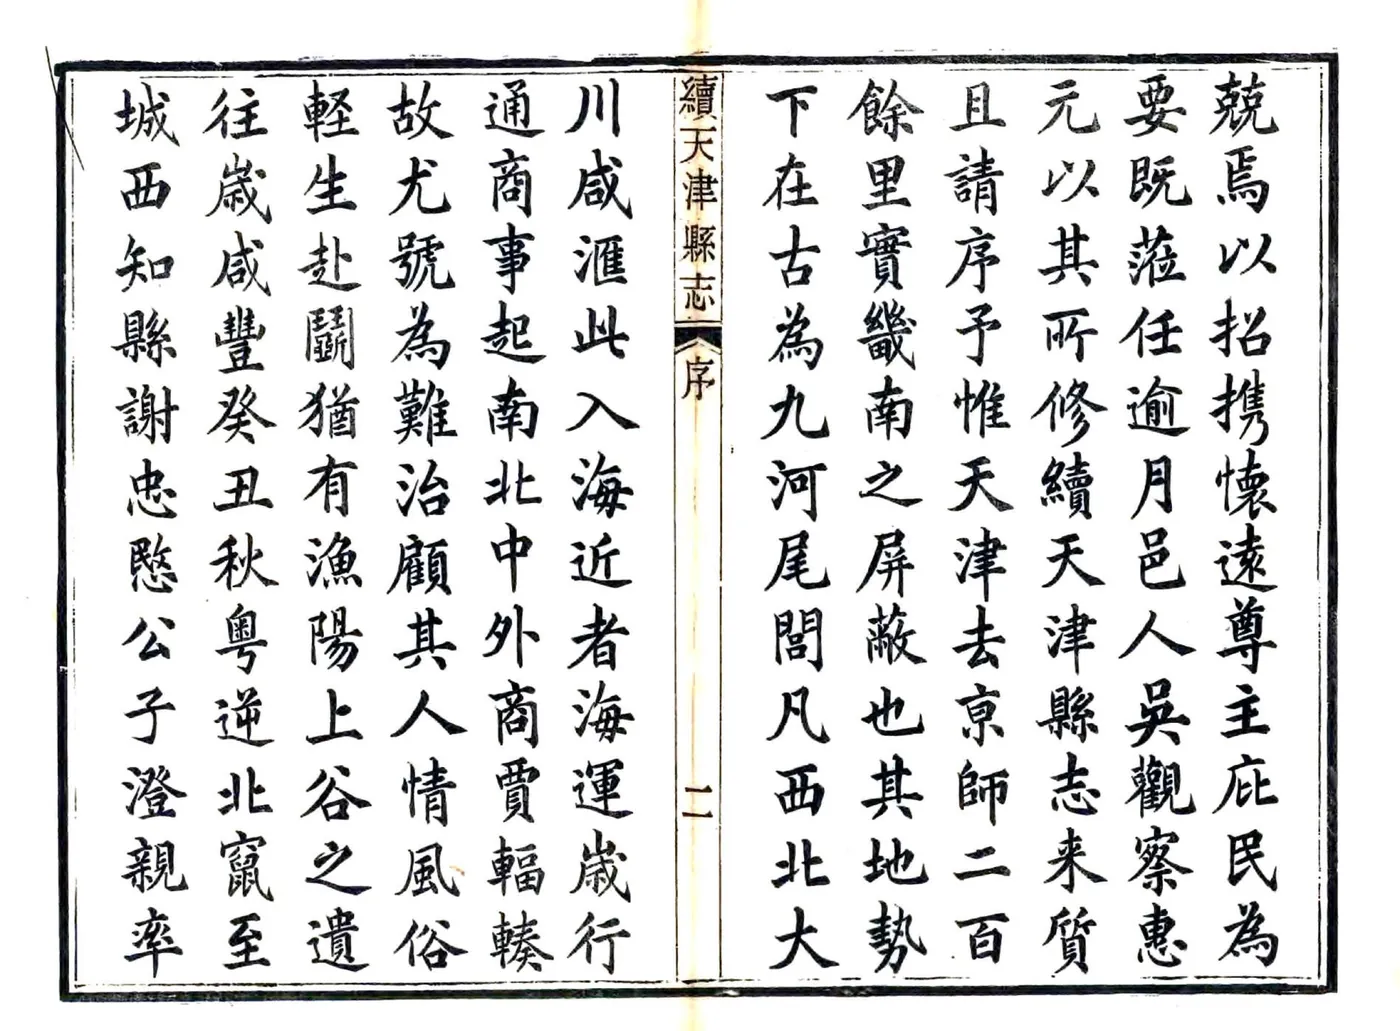 兢焉以招携懷遠尊主庇民為
要既蒞任逾月邑人吳觀察惠
元以其所修續天津縣志来質
且請序予惟天津去京師二百
餘里實畿南之屏蔽也其地勢
下在古為九河尾閭凡西北大
續天津縣志
序
二
川咸滙此入海近者海運歲行
通商事起南北中外商賈輻輳
故尤號為難治顧其人情風俗
輕生赴鬭猶有漁陽上谷之遺
往歲咸豐癸丑秋粵逆北竄至
城西知縣謝忠愍公子澄親率